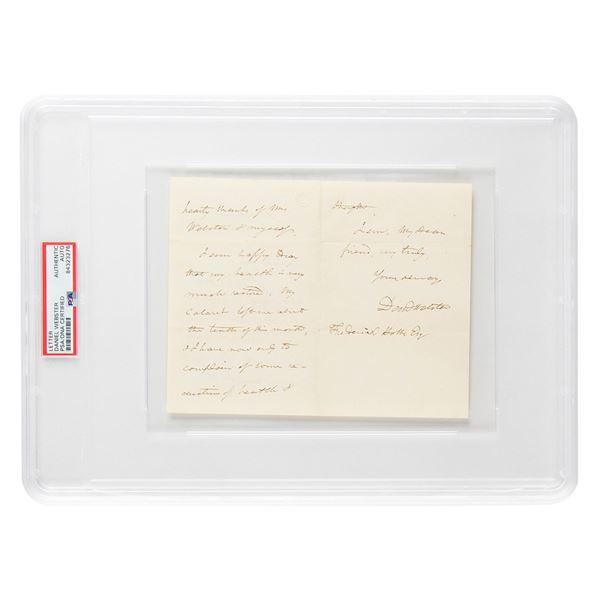 LETTER
DANIEL WEBSTER
PSA/DNA CERTIFIED
AUTHENTIC
AUTO
84323276
PSA
hearty thanks of Mrs
Webster & myself.
I am happy
that my health is very
much restored. My
Catarrh left me about
the tenth of this month,
& I have now only to
complain of some re-
duction of health &
I am, My Dear
friend, very truly
Yours always
Danl Webster
Frederick Esq